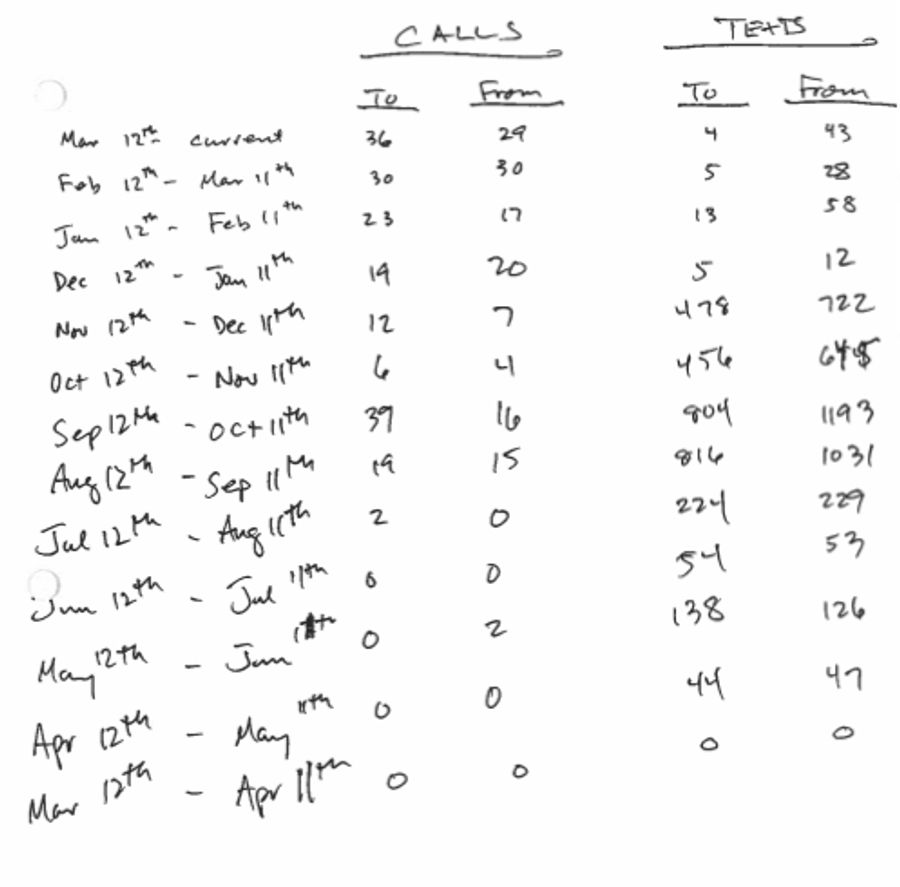 CALLS TEXTS
To From To From
Mar 12th - current 36 29 4 43
Feb 12th - Mar 11th 30 30 5 28
Jan 12th - Feb 11th 23 17 13 58
Dec 12th - Jan 11th 19 20 5 12
Nov 12th - Dec 11th 12 7 478 722
Oct 12th - Nov 11th 6 4 456
Sep 12th - Oct 11th 39 16 804 1193
Aug 12th - Sep 11th 19 15 816 1031
Jul 12th - Aug 11th 2 0 224 229
Jun 12th - Jul 11th 0 0 54 53
May 12th - Jun 11th 0 2 138 126
Apr 12th - May 11th 0 0 44 47
Mar 12th - Apr 11th 0 0 0 0